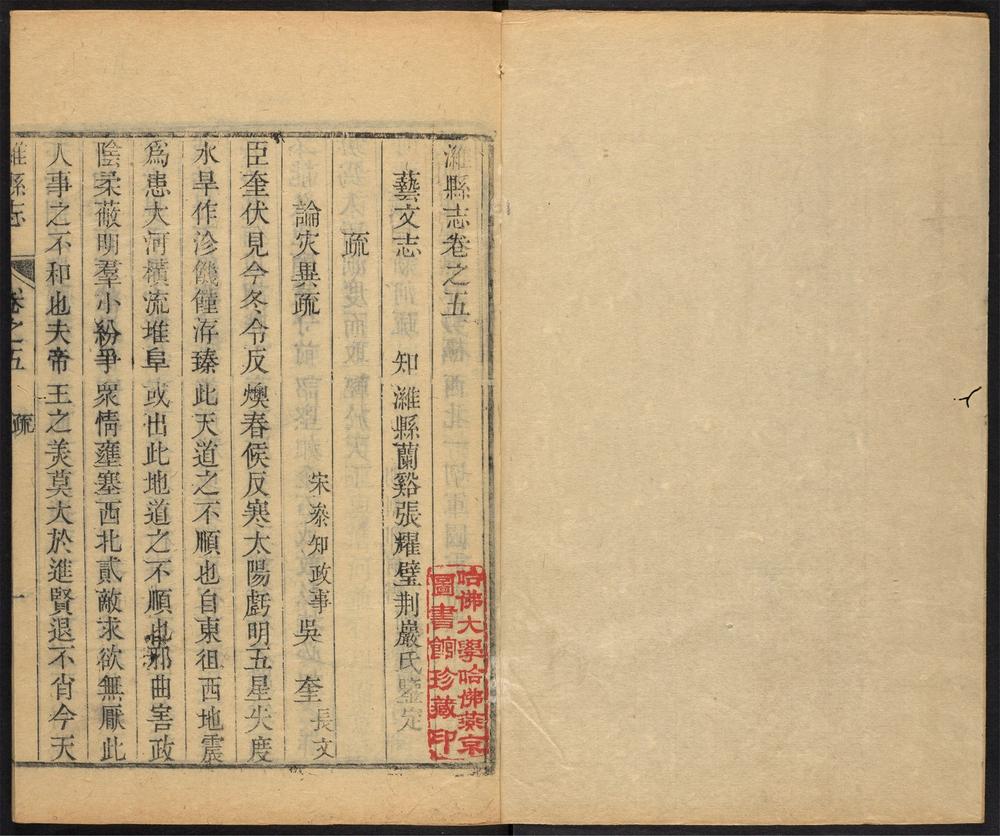 濰縣志卷之五
藝文志 知濰縣蘭谿張耀璧荆巖氏鑒定
疏
論灾異疏 宋叅知政事吳 奎長文
臣奎伏見今冬令反燠春候反寒太陽虧明五星失度
水旱作沴饑饉洊臻此天道之不順也自東徂西地震
爲患大河橫流堆阜或出此地道之不順也邪曲害政
陰柔蔽明羣小紛爭衆情壅塞西北貳敵求欲無厭此
人事之不和也夫帝王之美莫大於進賢退不肖今天
濰縣志 卷之五 疏 一
哈佛大學哈佛燕京
圖書館珍藏印